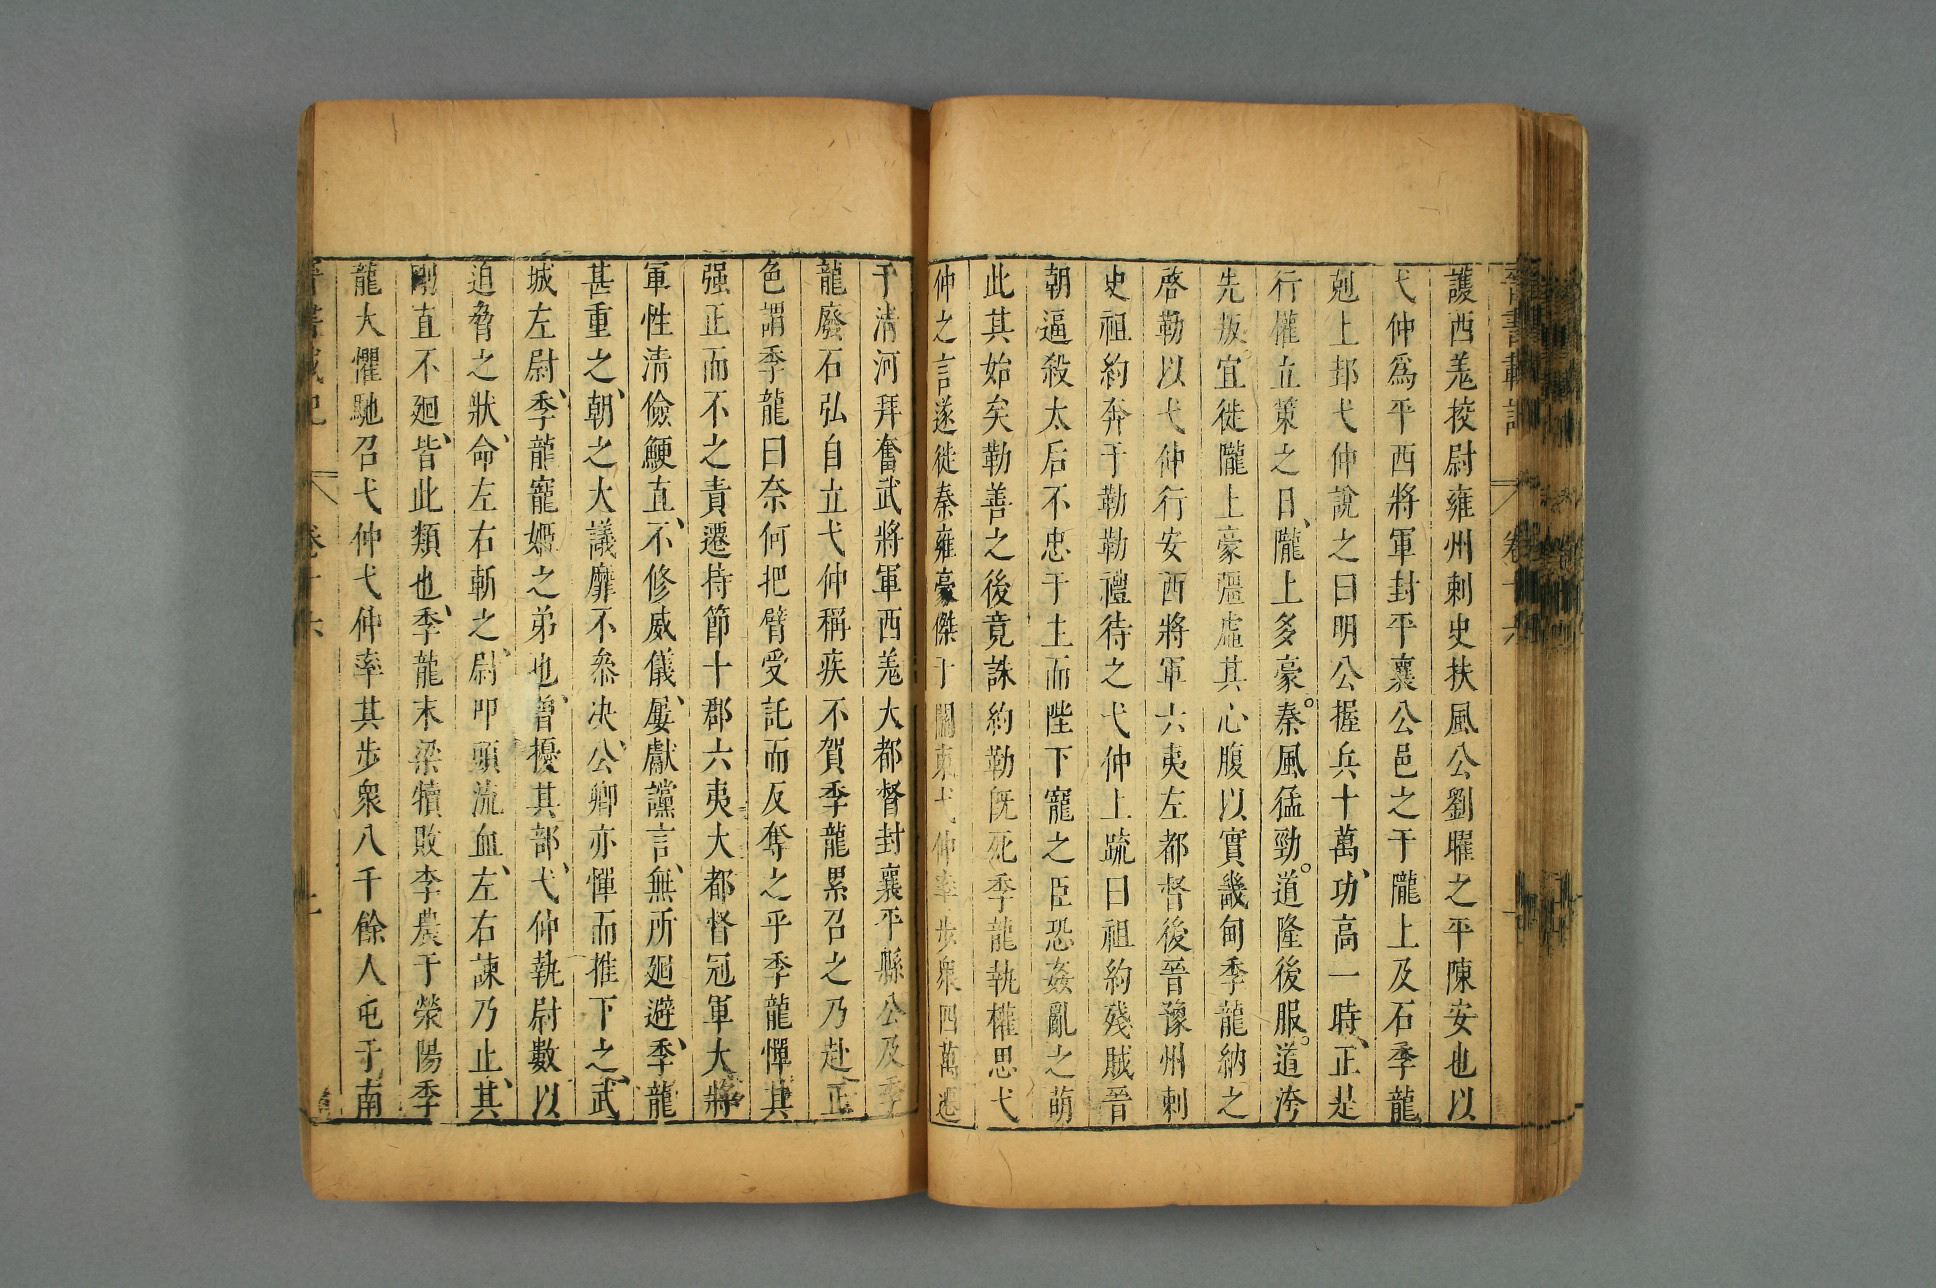 晉書載記 卷十六
護西羌挍尉雍州刺史扶風公劉曜之平陳安也以
弋仲爲平西將軍封平襄公邑之于隴上及石季龍
剋上邽弋仲說之曰明公握兵十萬、功高一時、正是
行權立策之日、隴上多豪。秦風猛勁。道隆後服。道洿
先叛宜徙隴上豪彊虛其心腹以實畿甸季龍納之
啓勒以弋仲行安西將軍六夷左都督後晉豫州刺
史祖約奔于勒勒禮待之弋仲上疏曰祖約殘賊晉
朝逼殺太后不忠于主而陛下寵之臣恐姦亂之萌
此其始矣勒善之後竟誅約勒旣死季龍執權思弋
仲之言遂徙秦雍豪傑于關東弋仲率步衆四萬遷
于清河拜奮武將軍西羌大都督封襄平縣公及季
龍廢石弘自立弋仲稱疾不賀季龍累召之乃赴正
色謂季龍曰奈何把臂受託而反奪之乎季龍憚其
强正而不之責遷持節十郡六夷大都督冠軍大將
軍性清儉鯁直、不修威儀、屢獻讜言、無所廻避、季龍
甚重之、朝之大議靡不叅决、公卿亦憚而推下之、武
城左尉、季龍寵姬之弟也、曾擾其部、弋仲執尉數以
迫脅之狀、命左右斬之、尉叩頭流血、左右諫乃止、其
剛直不廻、皆此類也、季龍末梁犢敗李農于滎陽季
龍大懼馳召弋仲弋仲率其步衆八千餘人屯于南
晉書載記 卷十六 二